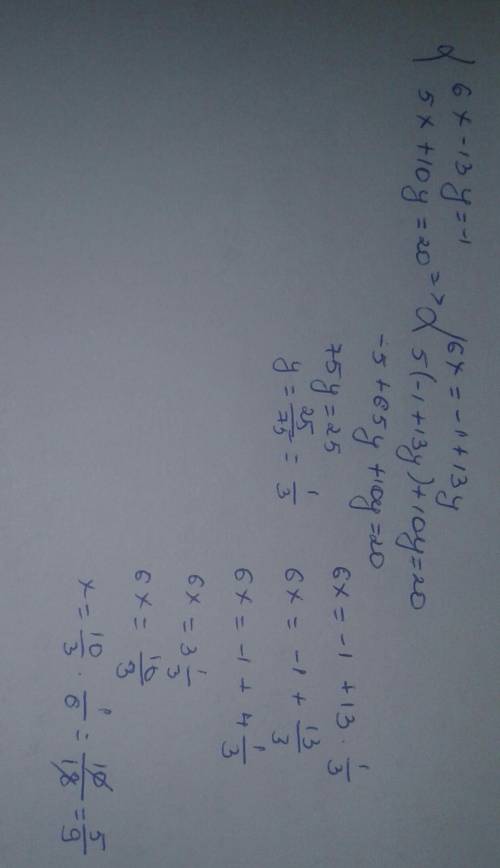 { 6x - 13y = -1
5x + 10y = 20 => { 6x = -1 + 13y
5(-1 + 13y) + 10y = 20
-5 + 65y + 10y = 20
75y = 25
y = 25/75 = 1/3
6x = -1 + 13 · 1/3
6x = -1 + 13/3
6x = -1 + 4 1/3
6x = 3 1/3
6x = 10/3
x = 10/3 · 1/6 = 10/18 = 5/9